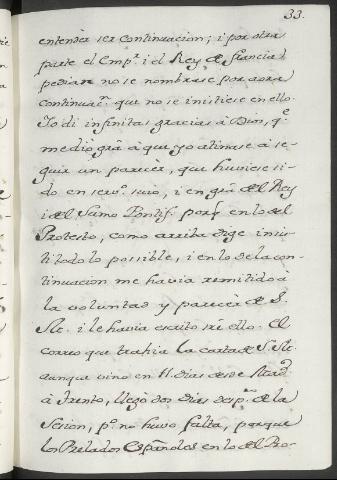 33.
entender ser continuacion; i por otra
parte el Emp.r i el Rey de Francia
pedian no se nombrase por aora
continuac.n que no se insistiese en ello.
Io di infinitas gracias á Dios, q.e
me dió grã á que yo atinase á se-
guir un parecer, que huviese si-
do en serv.o suio, i en grã del Rey
i del Sumo Pontif. porq en lo del
Protesto, como arriba dige insis-
ti todo lo possible, i en lo de la con-
tinuacion me havia remitido à
la voluntad y parecer de S.
St.e i le havia escrito sre ello. El
correo que trahia la carta de S. St.e
aunque vino en 11 dias desde
à Trento, llegò dos dias desp.s de la
Sesion, p.o no huvo falta, porque
los Prelados Españoles en lo del Pro-